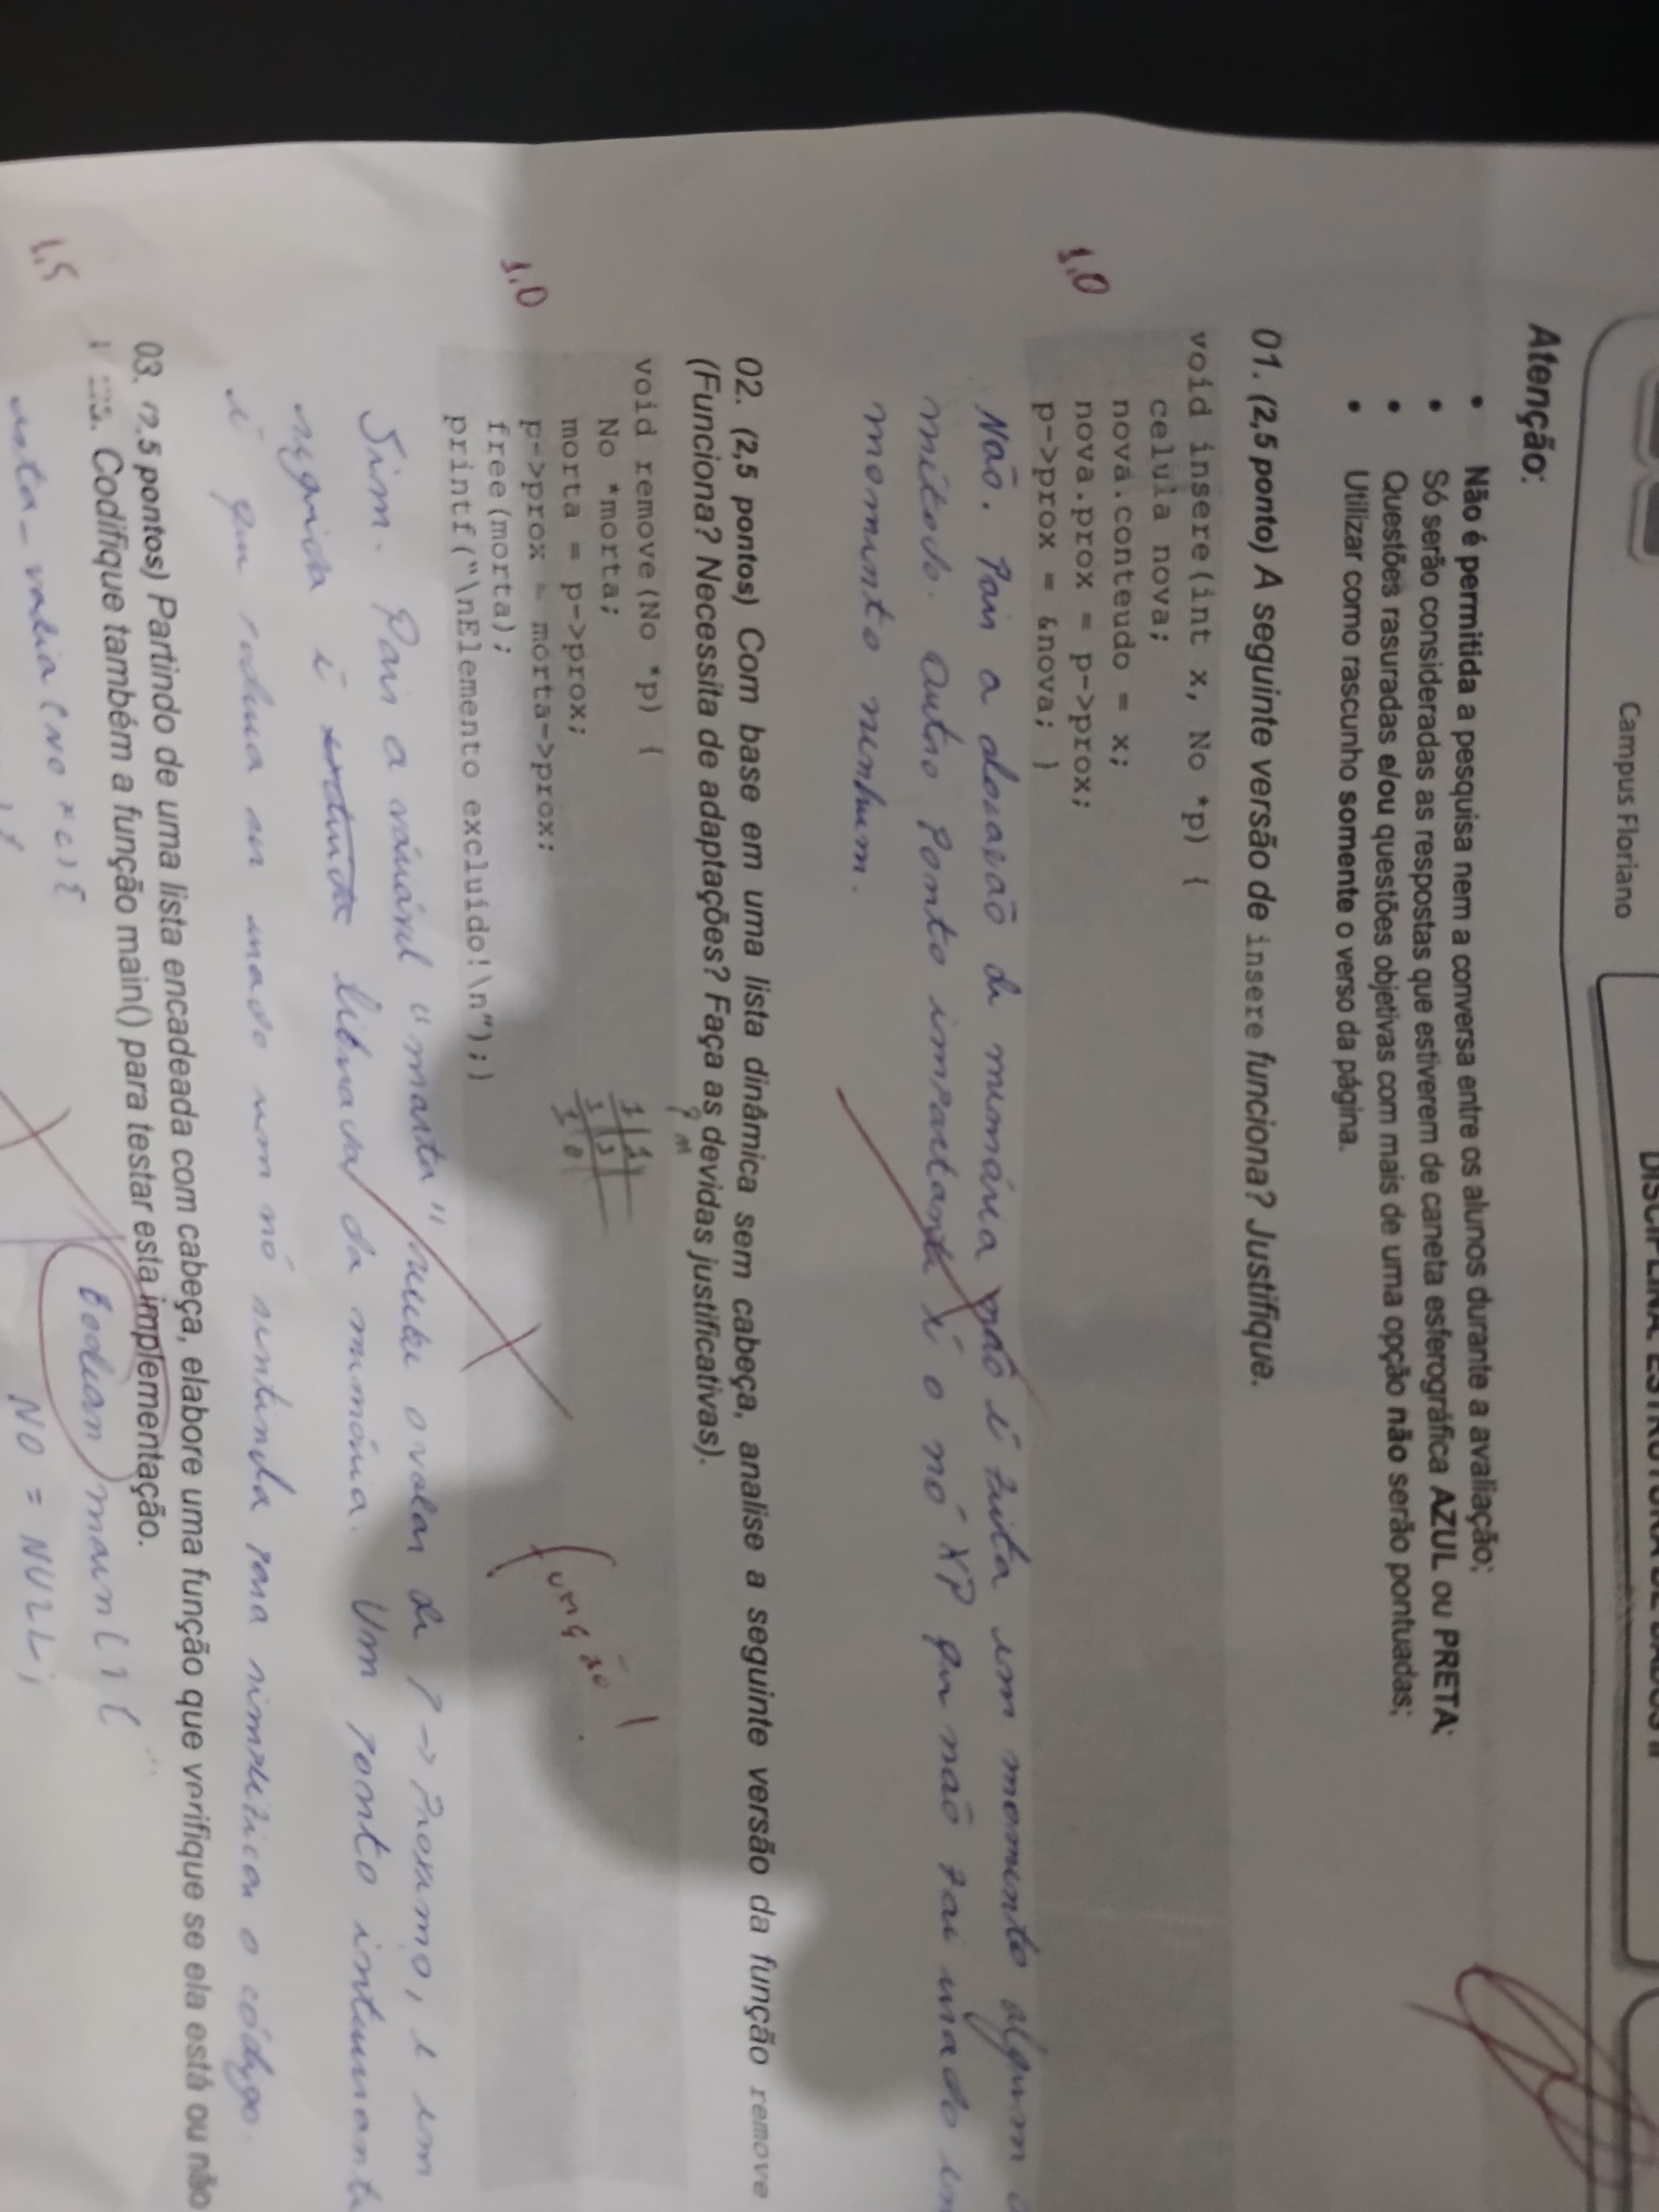 Campus Floriano
DISCIPLINA: ESTRUTURA DE DADOS II
Atenção:
• Não é permitida a pesquisa nem a conversa entre os alunos durante a avaliação;
• Só serão consideradas as respostas que estiverem de caneta esferográfica AZUL ou PRETA;
• Questões rasuradas e/ou questões objetivas com mais de uma opção não serão pontuadas;
• Utilizar como rascunho somente o verso da página.
01. (2,5 ponto) A seguinte versão de insere funciona? Justifique.
void insere(int x, No *p) {
celula nova;
nova.conteudo = x;
1.0
nova.prox = p->prox;
p->prox = &nova; }
Não. Pois a alocação de memória não é feita em momento algum
método. Outro ponto importante é o nó *P que não foi usado em
momento nenhum.
02. (2,5 pontos) Com base em uma lista dinâmica sem cabeça, analise a seguinte versão da função remove
(Funciona? Necessita de adaptações? Faça as devidas justificativas).
P m
void remove(No *p) {
No *morta;
morta = p->prox;
p->prox = morta->prox;
1.0
free(morta);
printf("\nElemento excluído!\n");}
1 1
1 0
função!
Sim. Pois a váriável "morta" recebe o valor de P -> Proximo, e em
seguida é liberada da memória. Um ponto interessante
é que poderia ser usado um nó sentinela para simplificar o código.
03. (2,5 pontos) Partindo de uma lista encadeada com cabeça, elabore uma função que verifique se ela está ou não
Codifique também a função main() para testar esta implementação.
1,5
lista_vazia (NO *c) {
Boolean main() {
NO = NULL;